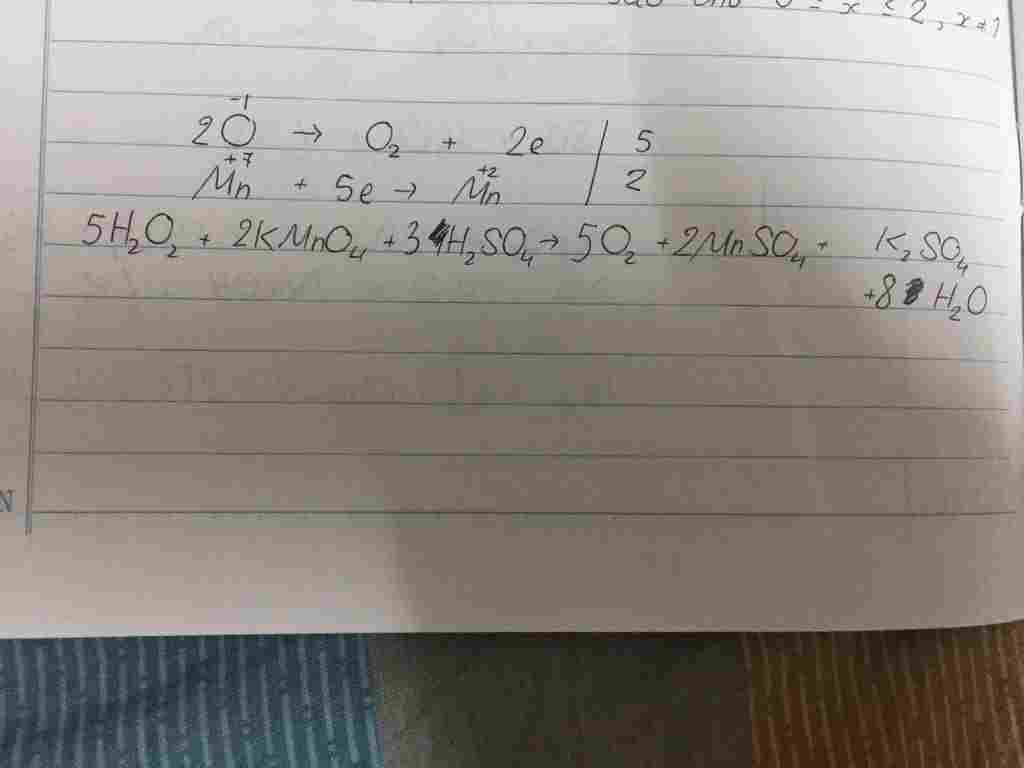 0 ≤ x ≤ 2, x≠1
2O⁻¹ → O₂ + 2e | 5
Mn⁺⁷ + 5e → Mn⁺² | 2
5H₂O₂ + 2KMnO₄ + 3H₂SO₄ → 5O₂ + 2MnSO₄ + K₂SO₄
+8 H₂O
N